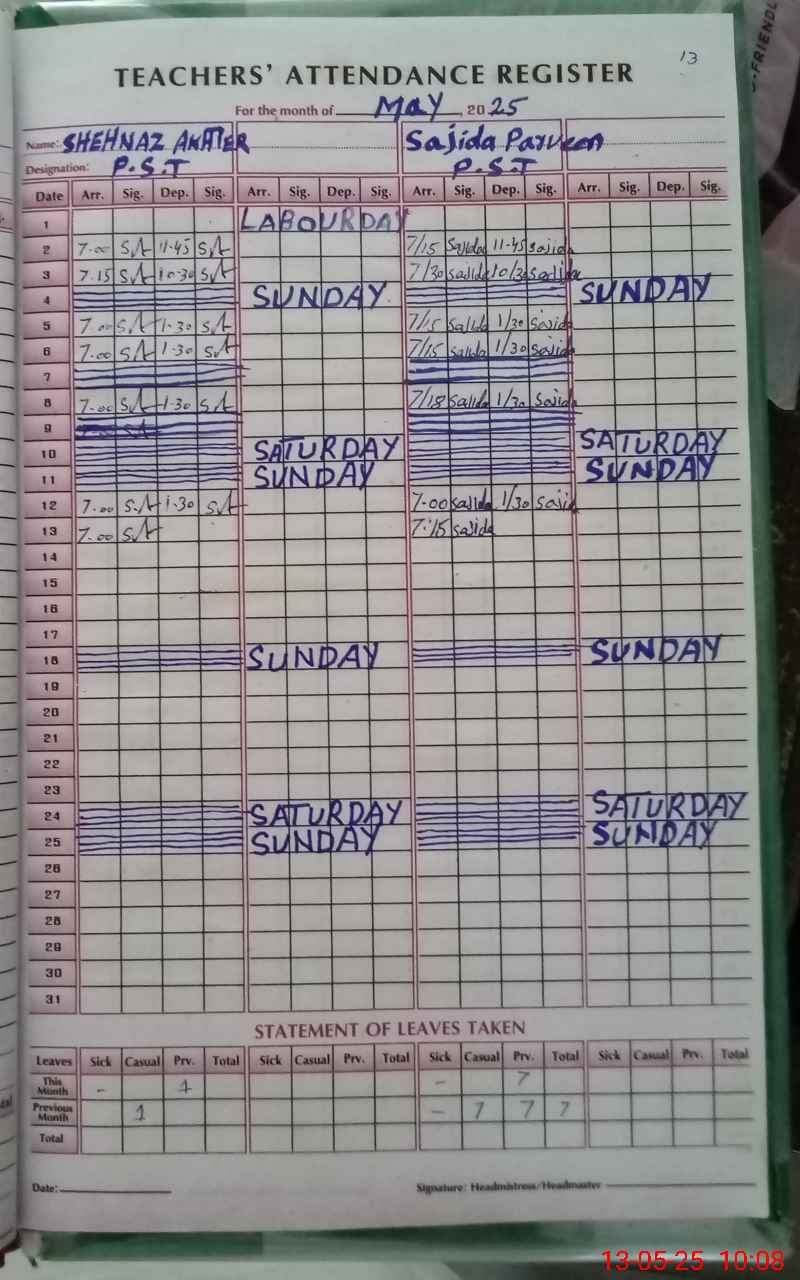 13
TEACHERS' ATTENDANCE REGISTER
For the month of May, 2025
Name: SHEHNAZ AKHTER Sajida Parveen
Designation: P.S.T P.S.T
Date Arr. Sig. Dep. Sig. Arr. Sig. Dep. Sig. Arr. Sig. Dep. Sig. Arr. Sig. Dep. Sig.
1 LABOUR DAY
2 7.00 SA 11-45 SA 7/15 Sajida 11-45 sajida
3 7.15 SA 10-30 SA 7/30 sajida 10/30 sajida
4 SUNDAY SUNDAY
5 7.00 SA 1-30 SA 7/15 Sajida 1/30 sajida
6 7.00 SA 1-30 SA 7/15 sajida 1/30 sajida
7
8 7.00 SA 1-30 SA 7/18 sajida 1/30 Sajida
9
10 SATURDAY SATURDAY
11 SUNDAY SUNDAY
12 7.00 S.A 1-30 SA 7-00 sajida 1/30 sajida
13 7.00 SA 7:15 sajida
14
15
16
17
18 SUNDAY SUNDAY
19
20
21
22
23
24 SATURDAY SATURDAY
25 SUNDAY SUNDAY
26
27
28
29
30
31
STATEMENT OF LEAVES TAKEN
Leaves Sick Casual Prv. Total Sick Casual Prv. Total Sick Casual Prv. Total Sick Casual Prv. Total
This Month - 1 - 7
Previous Month 1 - 7 7 7
Total
Date: Signature: Headmistress/Headmaster
13-05-25 10:08